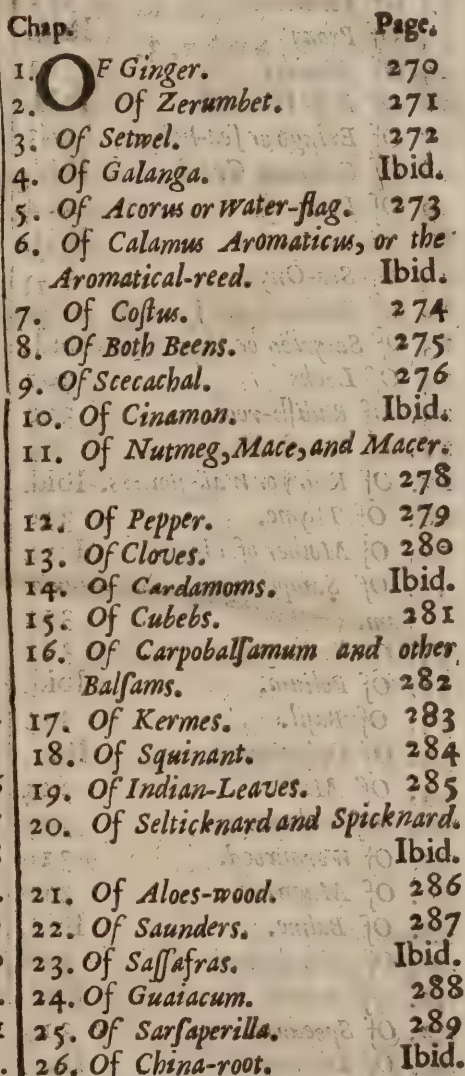 Chap. Page.
1. OF Ginger. 270
2. Of Zerumbet. 271
3. Of Setwel. 272
4. Of Galanga. Ibid.
5. Of Acorus or Water-flag. 273
6. Of Calamus Aromaticus, or the
Aromatical-reed. Ibid.
7. Of Coſtus. 274
8. Of Both Beens. 275
9. Of Scecachal. 276
10. Of Cinamon. Ibid.
11. Of Nutmeg, Mace, and Macer.
278
12. Of Pepper. 279
13. Of Cloves. 280
14. Of Cardamoms. Ibid.
15. Of Cubebs. 281
16. Of Carpobalſamum and other
Balſams. 282
17. Of Kermes. 283
18. Of Squinant. 284
19. Of Indian-Leaves. 285
20. Of Selticknard and Spicknard.
Ibid.
21. Of Aloes-wood. 286
22. Of Saunders. 287
23. Of Saſſafras. Ibid.
24. Of Guaiacum. 288
25. Of Sarſaperilla. 289
26. Of China-root. Ibid.